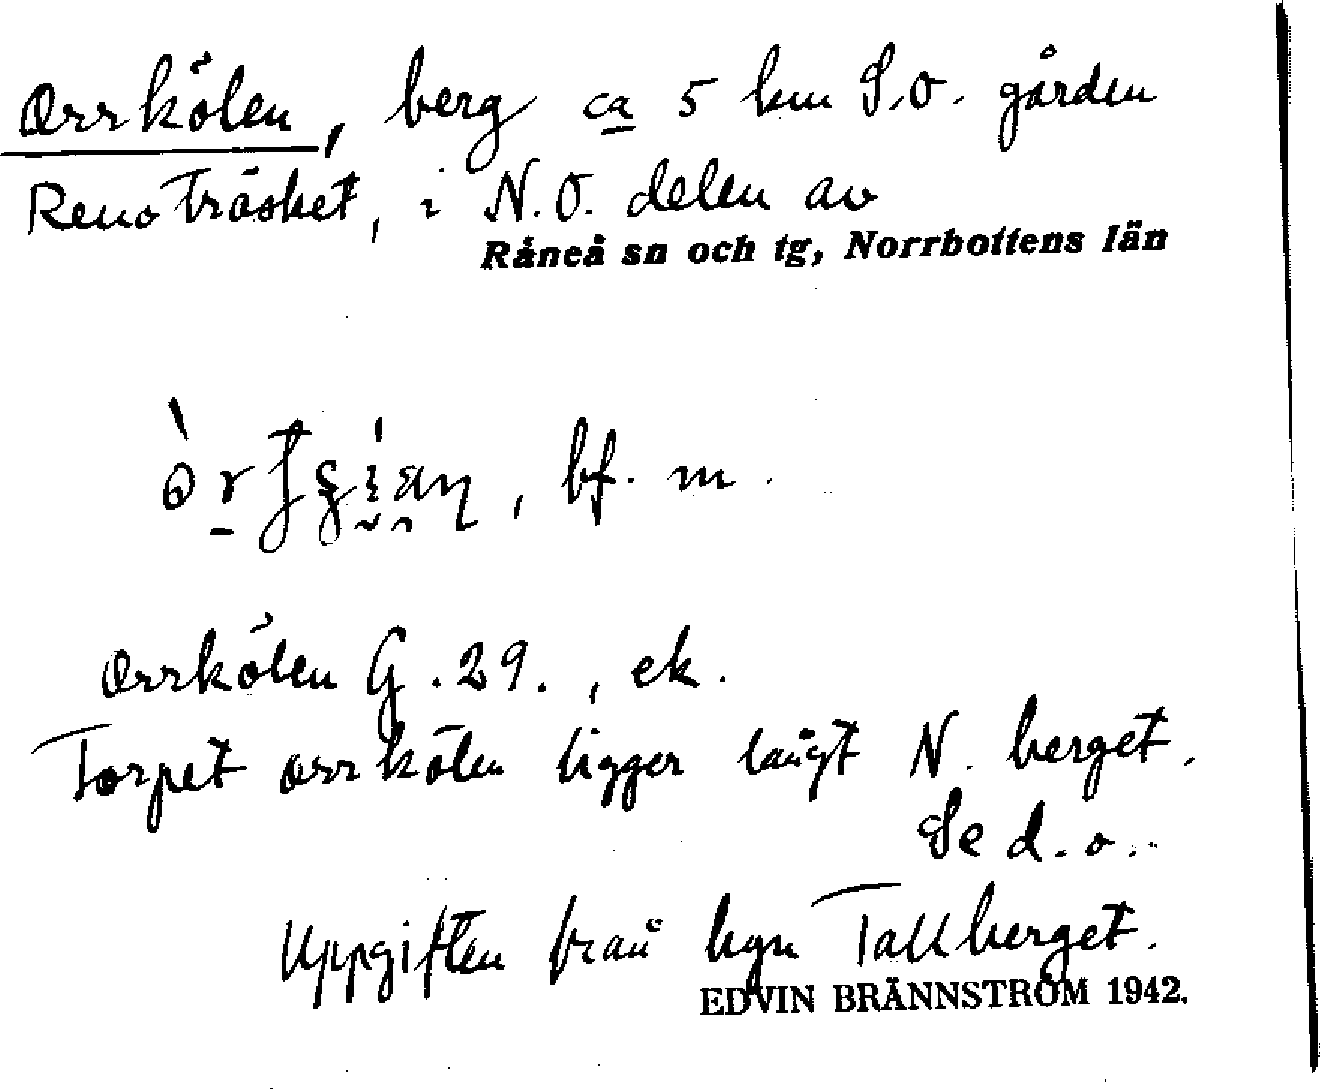 Orrkölen, berg ca 5 km S.O. gården
Renoträsket, i N.O. delen av
Råneå sn och tg, Norrbottens län
, bf. m.
Orrkölen G. 29., ek.
Torpet Orrkölen ligger långt N. berget.
Se d.o.
Uppgiften från byn Tallberget.
EDVIN BRÄNNSTRÖM 1942.